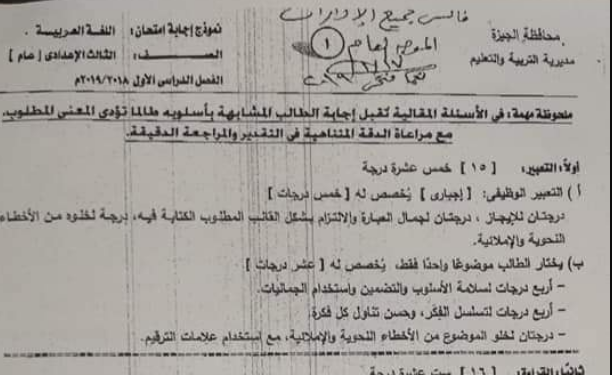 محافظة الجيزة
مديرية التربية والتعليم
نموذج إجابة امتحان: اللغة العربية
الصف: الثالث الإعدادي [ عام ]
الفصل الدراسى الأول ٢٠١٩/٢٠١٨م
١
ملحوظة مهمة: فى الأسئلة المقالية تُقبل إجابة الطالب المشابهة بأسلوبه طالما تؤدى المعنى المطلوب،
مع مراعاة الدقة المتناهية فى التقدير والمراجعة الدقيقة.
أولاً: التعبير: [ ١٥ ] خمس عشرة درجة
أ ) التعبير الوظيفى: [ إجبارى ] يُخصص له [ خمس درجات ]
درجتان للإيجاز ، درجتان لجمال العبارة والالتزام بشكل القالب المطلوب الكتابة فيه، درجة لخلوه من الأخطاء
النحوية والإملائية.
ب) يختار الطالب موضوعًا واحدًا فقط، يُخصص له [ عشر درجات ]
– أربع درجات لسلامة الأسلوب والتضمين واستخدام الجماليات.
– أربع درجات لتسلسل الفِكَر، وحسن تناول كل فكرة.
– درجتان لخلو الموضوع من الأخطاء النحوية والإملائية، مع استخدام علامات الترقيم.
ثانيًا: القراءة: [ ١٦ ] ست عشرة درجة